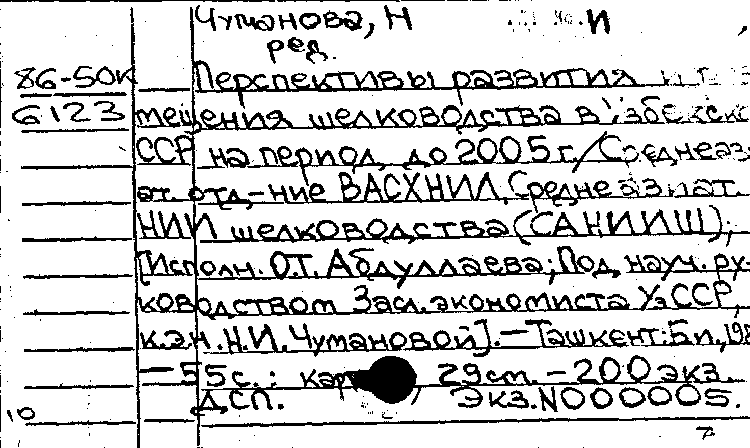 Чуманова, Н И
ред.
86-50к Перспективы развития и
6123 мещения шелководства в Узбекско
ССР на период до 2005 г. / Среднеаз
ат. отд-ние ВАСХНИЛ, Среднеазиат.
НИИ шелководства (САНИИШ);
[Исполн. О.Т. Абдуллаева; Под науч. ру-
ководством Засл. экономиста УзССР,
к.э.н. Н.И. Чумановой]. — Ташкент: Б.и., 198
— 55 с.: карт , 29 см. — 200 экз.
10 ДСП. Экз. N000005.